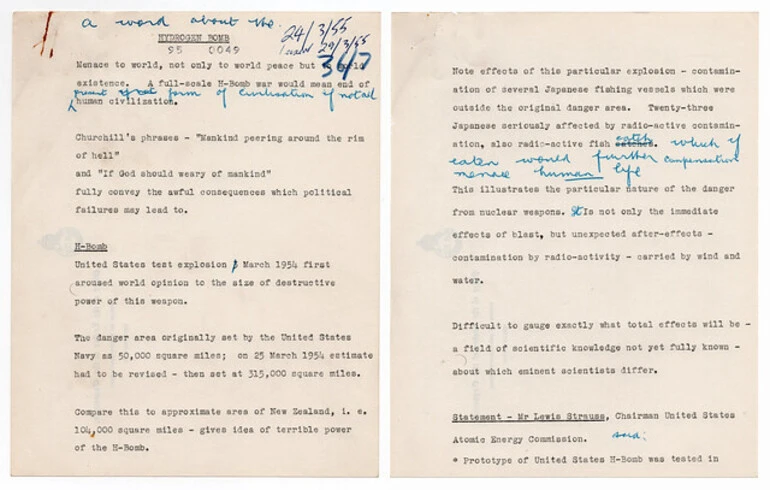 a word about the
24/3/55
HYDROGEN BOMB
29/3/55
95 0049
34/7
Menace to world, not only to world peace but to world
existence. A full-scale H-Bomb war would mean end of
present form of civilisation if not all
human civilization.
Churchill's phrases - "Mankind peering around the rim
of hell"
and "If God should weary of mankind"
fully convey the awful consequences which political
failures may lead to.
H-Bomb
United States test explosion March 1954 first
aroused world opinion to the size of destructive
power of this weapon.
The danger area originally set by the United States
Navy as 50,000 square miles; on 25 March 1954 estimate
had to be revised - then set at 315,000 square miles.
Compare this to approximate area of New Zealand, i. e.
104,000 square miles - gives idea of terrible power
of the H-Bomb.
Note effects of this particular explosion - contamin-
ation of several Japanese fishing vessels which were
outside the original danger area. Twenty-three
Japanese seriously affected by radio-active contamin-
ation, also radio-active fish catches. catch which if
eaten would further compensation
menace human life
This illustrates the particular nature of the danger
from nuclear weapons. It Is not only the immediate
effects of blast, but unexpected after-effects -
contamination by radio-activity - carried by wind and
water.
Difficult to gauge exactly what total effects will be -
a field of scientific knowledge not yet fully known -
about which eminent scientists differ.
Statement - Mr Lewis Strauss, Chairman United States
Atomic Energy Commission. said:
" Prototype of United States H-Bomb was tested in